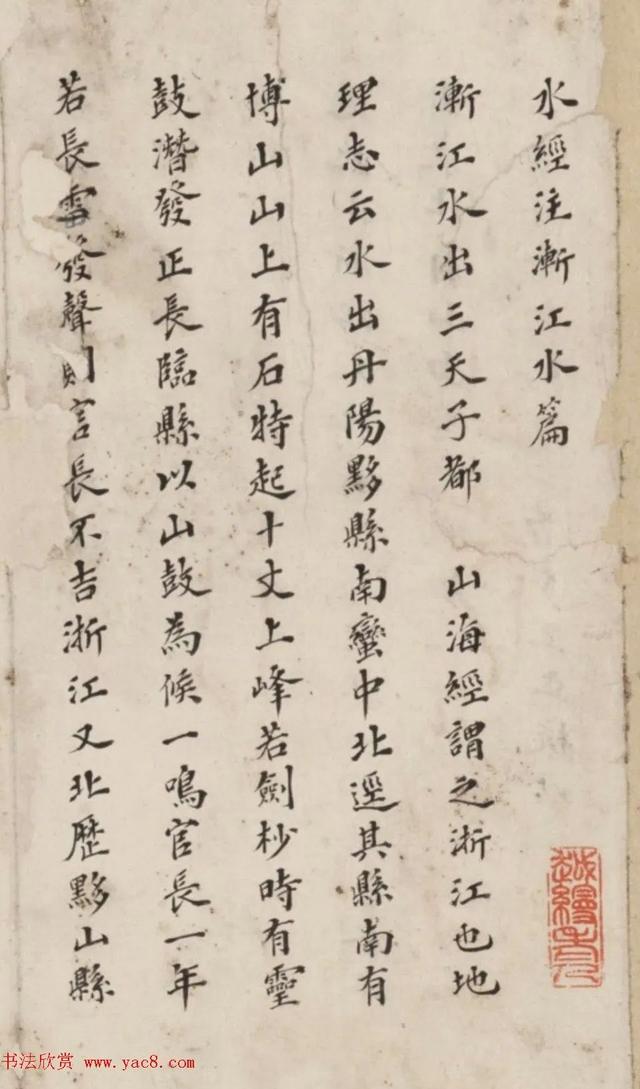 水經注漸江水篇
漸江水出三天子都 山海經謂之浙江也地
理志云水出丹陽黟縣南蠻中北逕其縣南有
博山山上有石特起十丈上峰若劍杪時有靈
鼓潛發正長臨縣以山鼓為候一鳴官長一年
若長雷發聲則官長不吉浙江又北歷黟山縣
书法欣赏 www.yac8.com